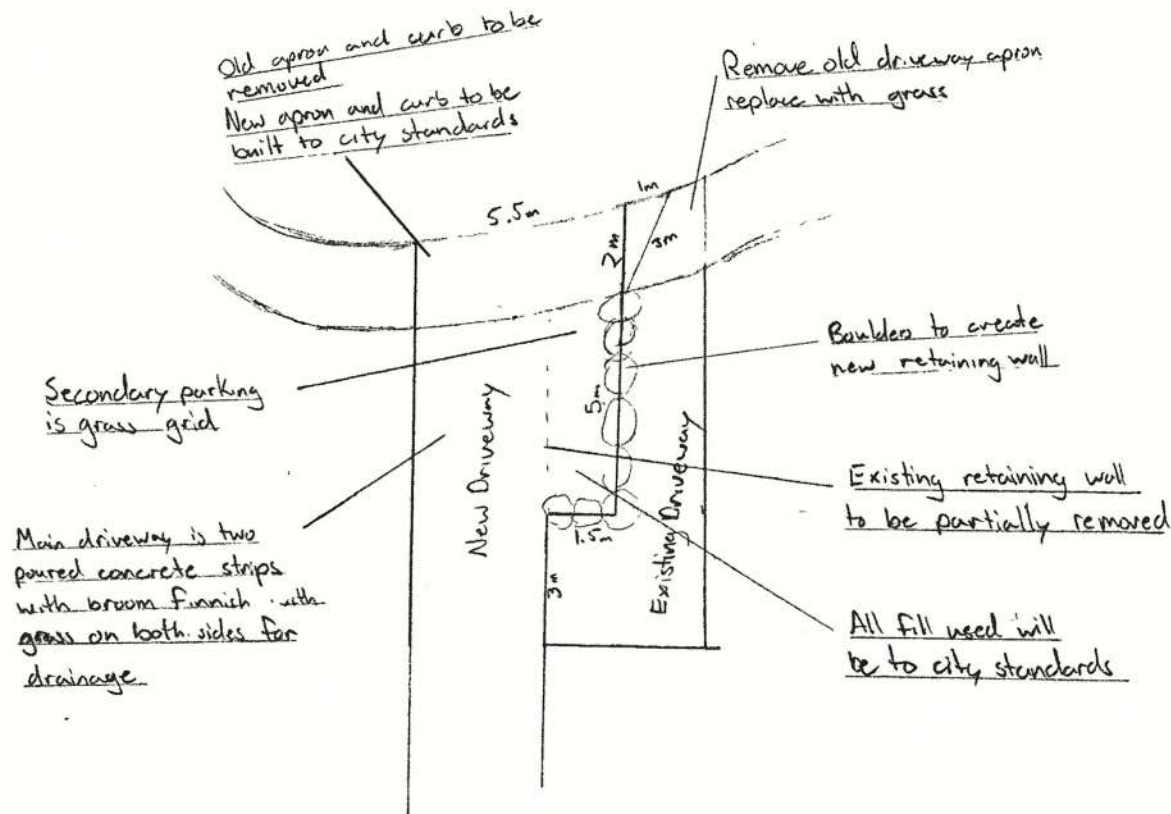 Old apron and curb to be
removed
New apron and curb to be
built to city standards
Remove old driveway apron
replace with grass
1m
5.5m
2m
3m
Boulders to create
new retaining wall
Secondary parking
is grass grid
5m
New Driveway
Existing Driveway
Existing retaining wall
to be partially removed
1.5m
3m
Main driveway is two
poured concrete strips
with broom finnish with
grass on both sides for
drainage
All fill used will
be to city standards